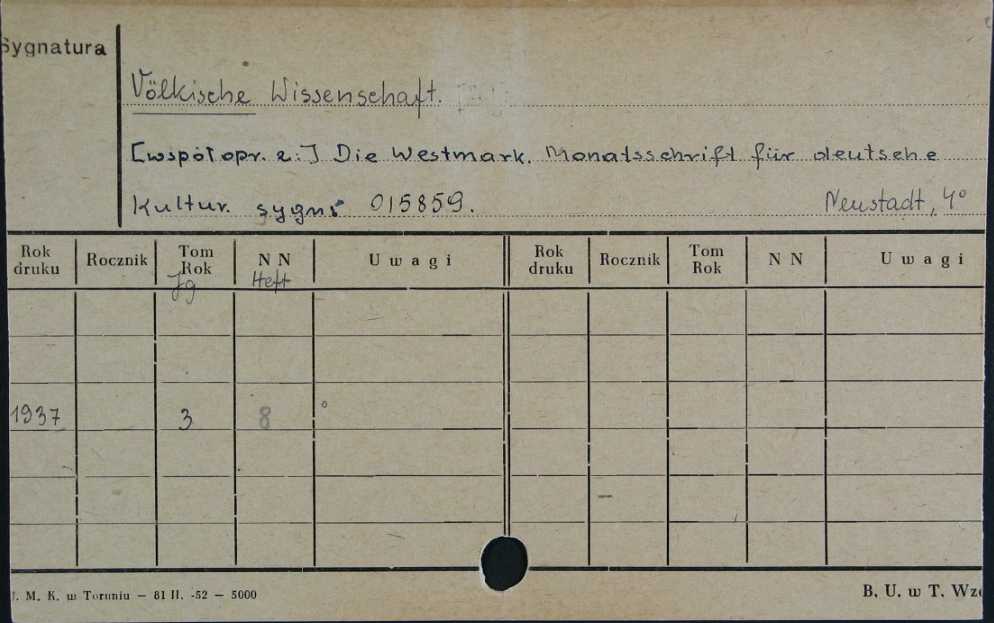 Sygnatura
Völkische Wissenschaft.
[współopr. z:] Die Westmark. Monatsschrift für deutsche
Kultur. sygn: 015859. Neustadt, 4°
Rok druku Rocznik Tom Rok N N U w a g i Rok druku Rocznik Tom Rok N N U w a g i
Jg Heft
1937 3 8 °
M. K. w Toruniu — 81 II. -52 — 5000 B. U. w T.